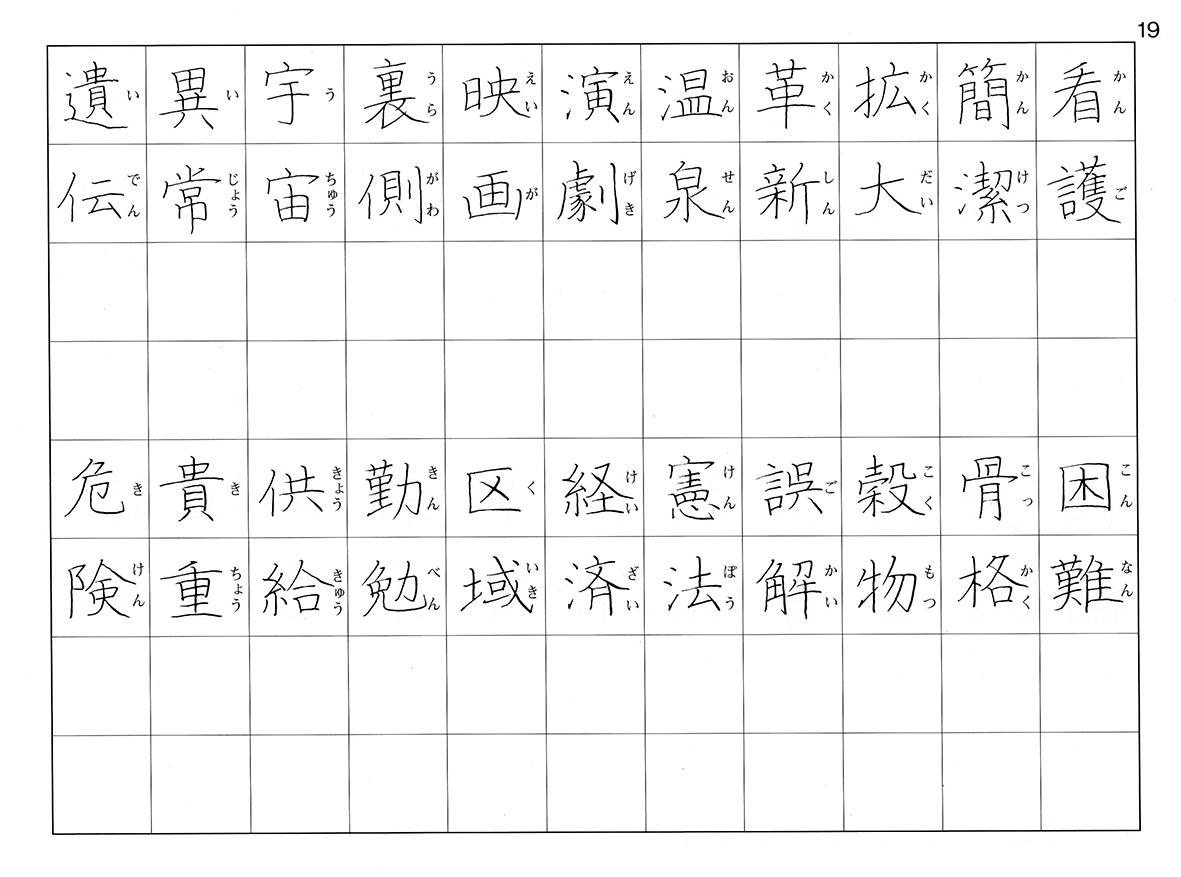 19
遺伝
いでん
異常
いじょう
宇宙
うちゅう
裏側
うらがわ
映画
えいが
演劇
えんげき
温泉
おんせん
革新
かくしん
拡大
かくだい
簡潔
かんけつ
看護
かんご
危険
きけん
貴重
きちょう
供給
きょうきゅう
勤勉
きんべん
区域
くいき
経済
けいざい
憲法
けんぽう
誤解
ごかい
穀物
こくもつ
骨格
こっかく
困難
こんなん